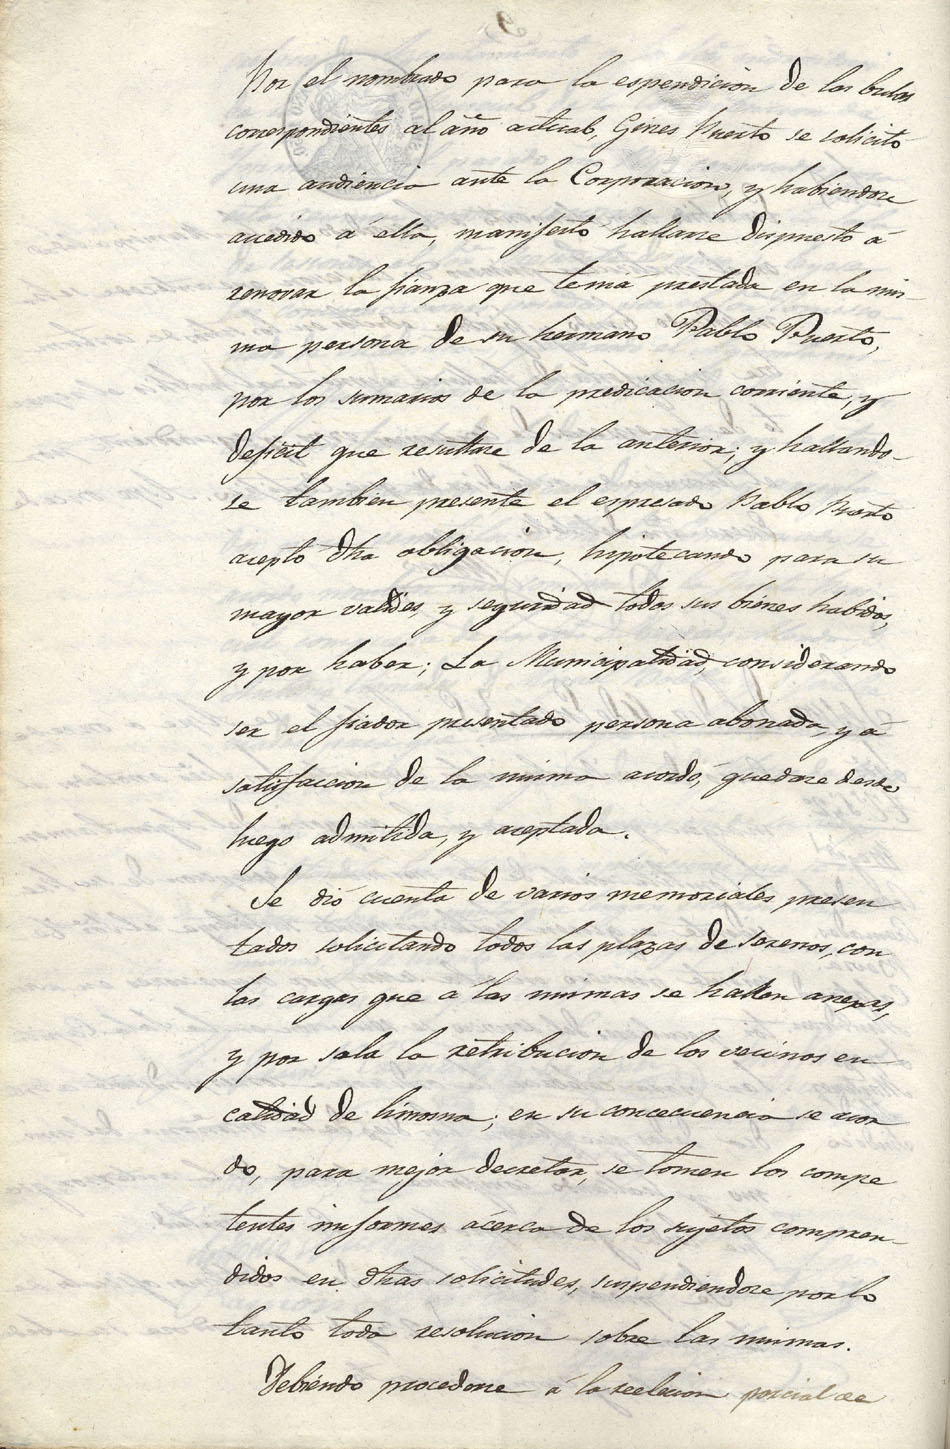 Por el nombrado para la espendicion de las bulas
correspondientes al año actual, Gines Puerto se solicitó
una audiencia ante la Corporacion, y habiendose
accedido á ella, manifestó hallarse dispuesto á
renovar la fianza que tenia prestada en la mis-
ma persona de su hermano Pablo Puerto,
por los sumarios de la predicacion corriente, y
deficit que resultare de la anterior; y hallando-
se tambien presente el espresado Pablo Puerto
acepto dha obligacion, hipotecando para su
mayor validés, y seguridad todos sus bienes habidos,
y por haber; La Municipalidad, considerando
ser el fiador presentado persona abonada, y á
satisfaccion de la misma acordó, quedase desde
luego admitida, y aceptada.
Se dió cuenta de varios memoriales presen
tados solicitando todos las plazas de serenos, con
las cargas que á las mismas se hallan anexas,
y por sola la retribucion de los vecinos en
calidad de limosna; en su concecuencia se acor
do, para mejor decretar, se tomen los compe
tentes informes ácerca de los sujetos compren-
didos en dhas solicitudes, suspendiendose por lo
tanto toda resolucion sobre las mismas.
Debiendo procederse á la reeleccion parcial de